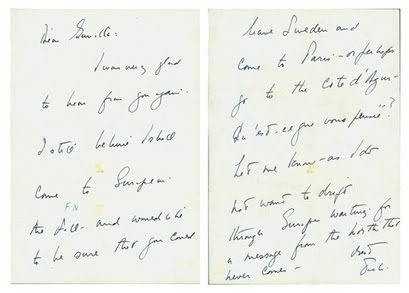 Dear Gunilla:
I was very glad
to hear from you again.
I still believe I shall
come to Europe in
FN
the fall - and would like
to be sure that you could
leave Sweden and
come to Paris - or perhaps
go to the Cote d'Azur -
Qu'est-ce que vous pense"?
Let me know - as I do
not want to drift
through Europe waiting for
a message from the north that
never comes -